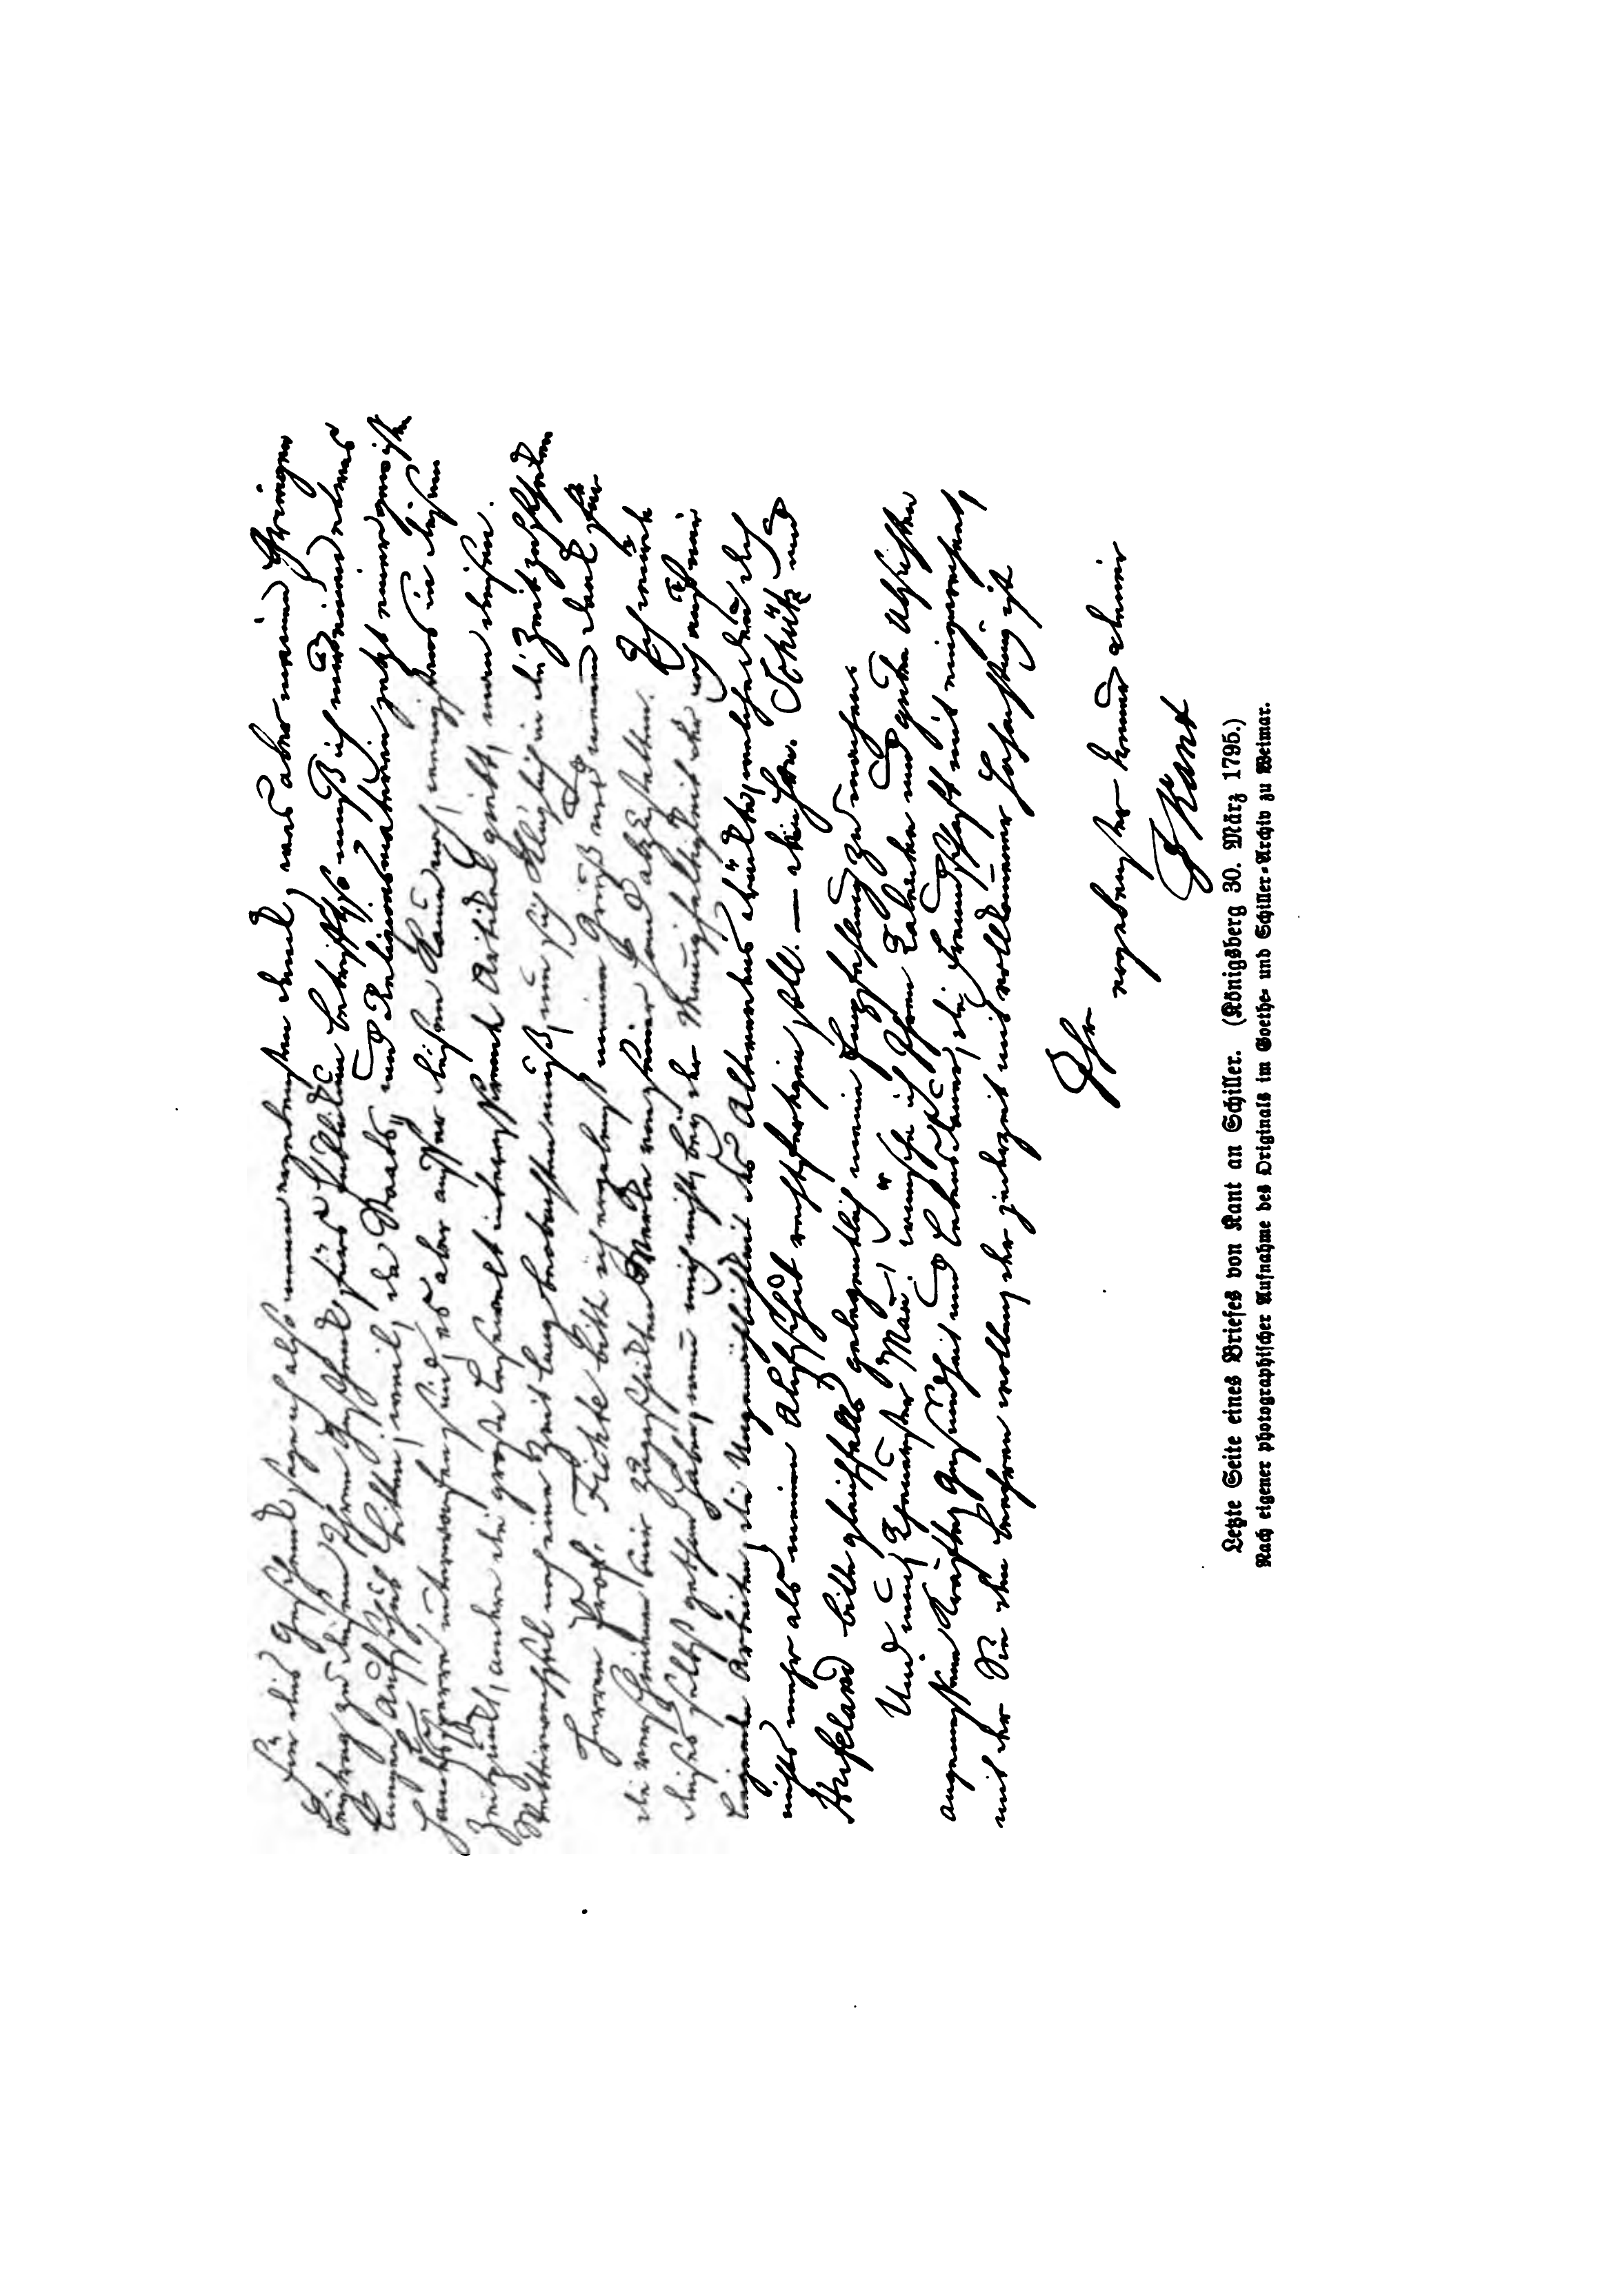 Für dies Geschenk sage ich also meinen ergebensten Dank; was aber meinen geringen
Beytrag zu diesem Ihrem Geschenk fürs Publicum betrifft, so muß ich mir einen etwas
langen Aufschub erbitten; weil, da Staats- und Religionsmaterien jetzt einer gewissen
Handelssperre unterworfen sind, es aber außer diesen kaum noch, wenigstens in diesem
Zeitpunkt, andere die große Lesewelt interessirende Artikel giebt, man diesen
Wetterwechsel noch eine Zeitlang beobachten muß, um sich klüglich in die Zeit zu schicken.
Herren Prof: Fichte bitte ich ergebenst meinen Gruß und meinen Dank für
die verschiedenen mir zugeschickten Werke von seiner Hand abzustatten. Ich würde
dieses selbst gethan haben, wenn mich nicht, bey der Mannigfaltigkeit der noch auf mir
liegenden Arbeiten, die Ungemächlichkeit des Altwerdens drückte, welche denn doch
nichts mehr als meinen Aufschub rechtfertigen soll. — Den Hrn. Schütz und
Hufeland bitte gleichfalls gelegentlich meine Empfehlung zu machen.
Und nun, theuerster Mann! wünsche ich Ihren Talenten und guten Absichten
angemessene Kräfte, Gesundheit und Lebensdauer, die Freundschaft mit eingerechnet,
mit der Sie den beehren wollen, der jederzeit mit vollkommener Hochachtung ist
Ihr
ergebenster treuer Diener
I Kant
Letzte Seite eines Briefes von Kant an Schiller. (Königsberg 30. März 1795.)
Nach eigener photographischer Aufnahme des Originals im Goethe- und Schiller-Archiv zu Weimar.